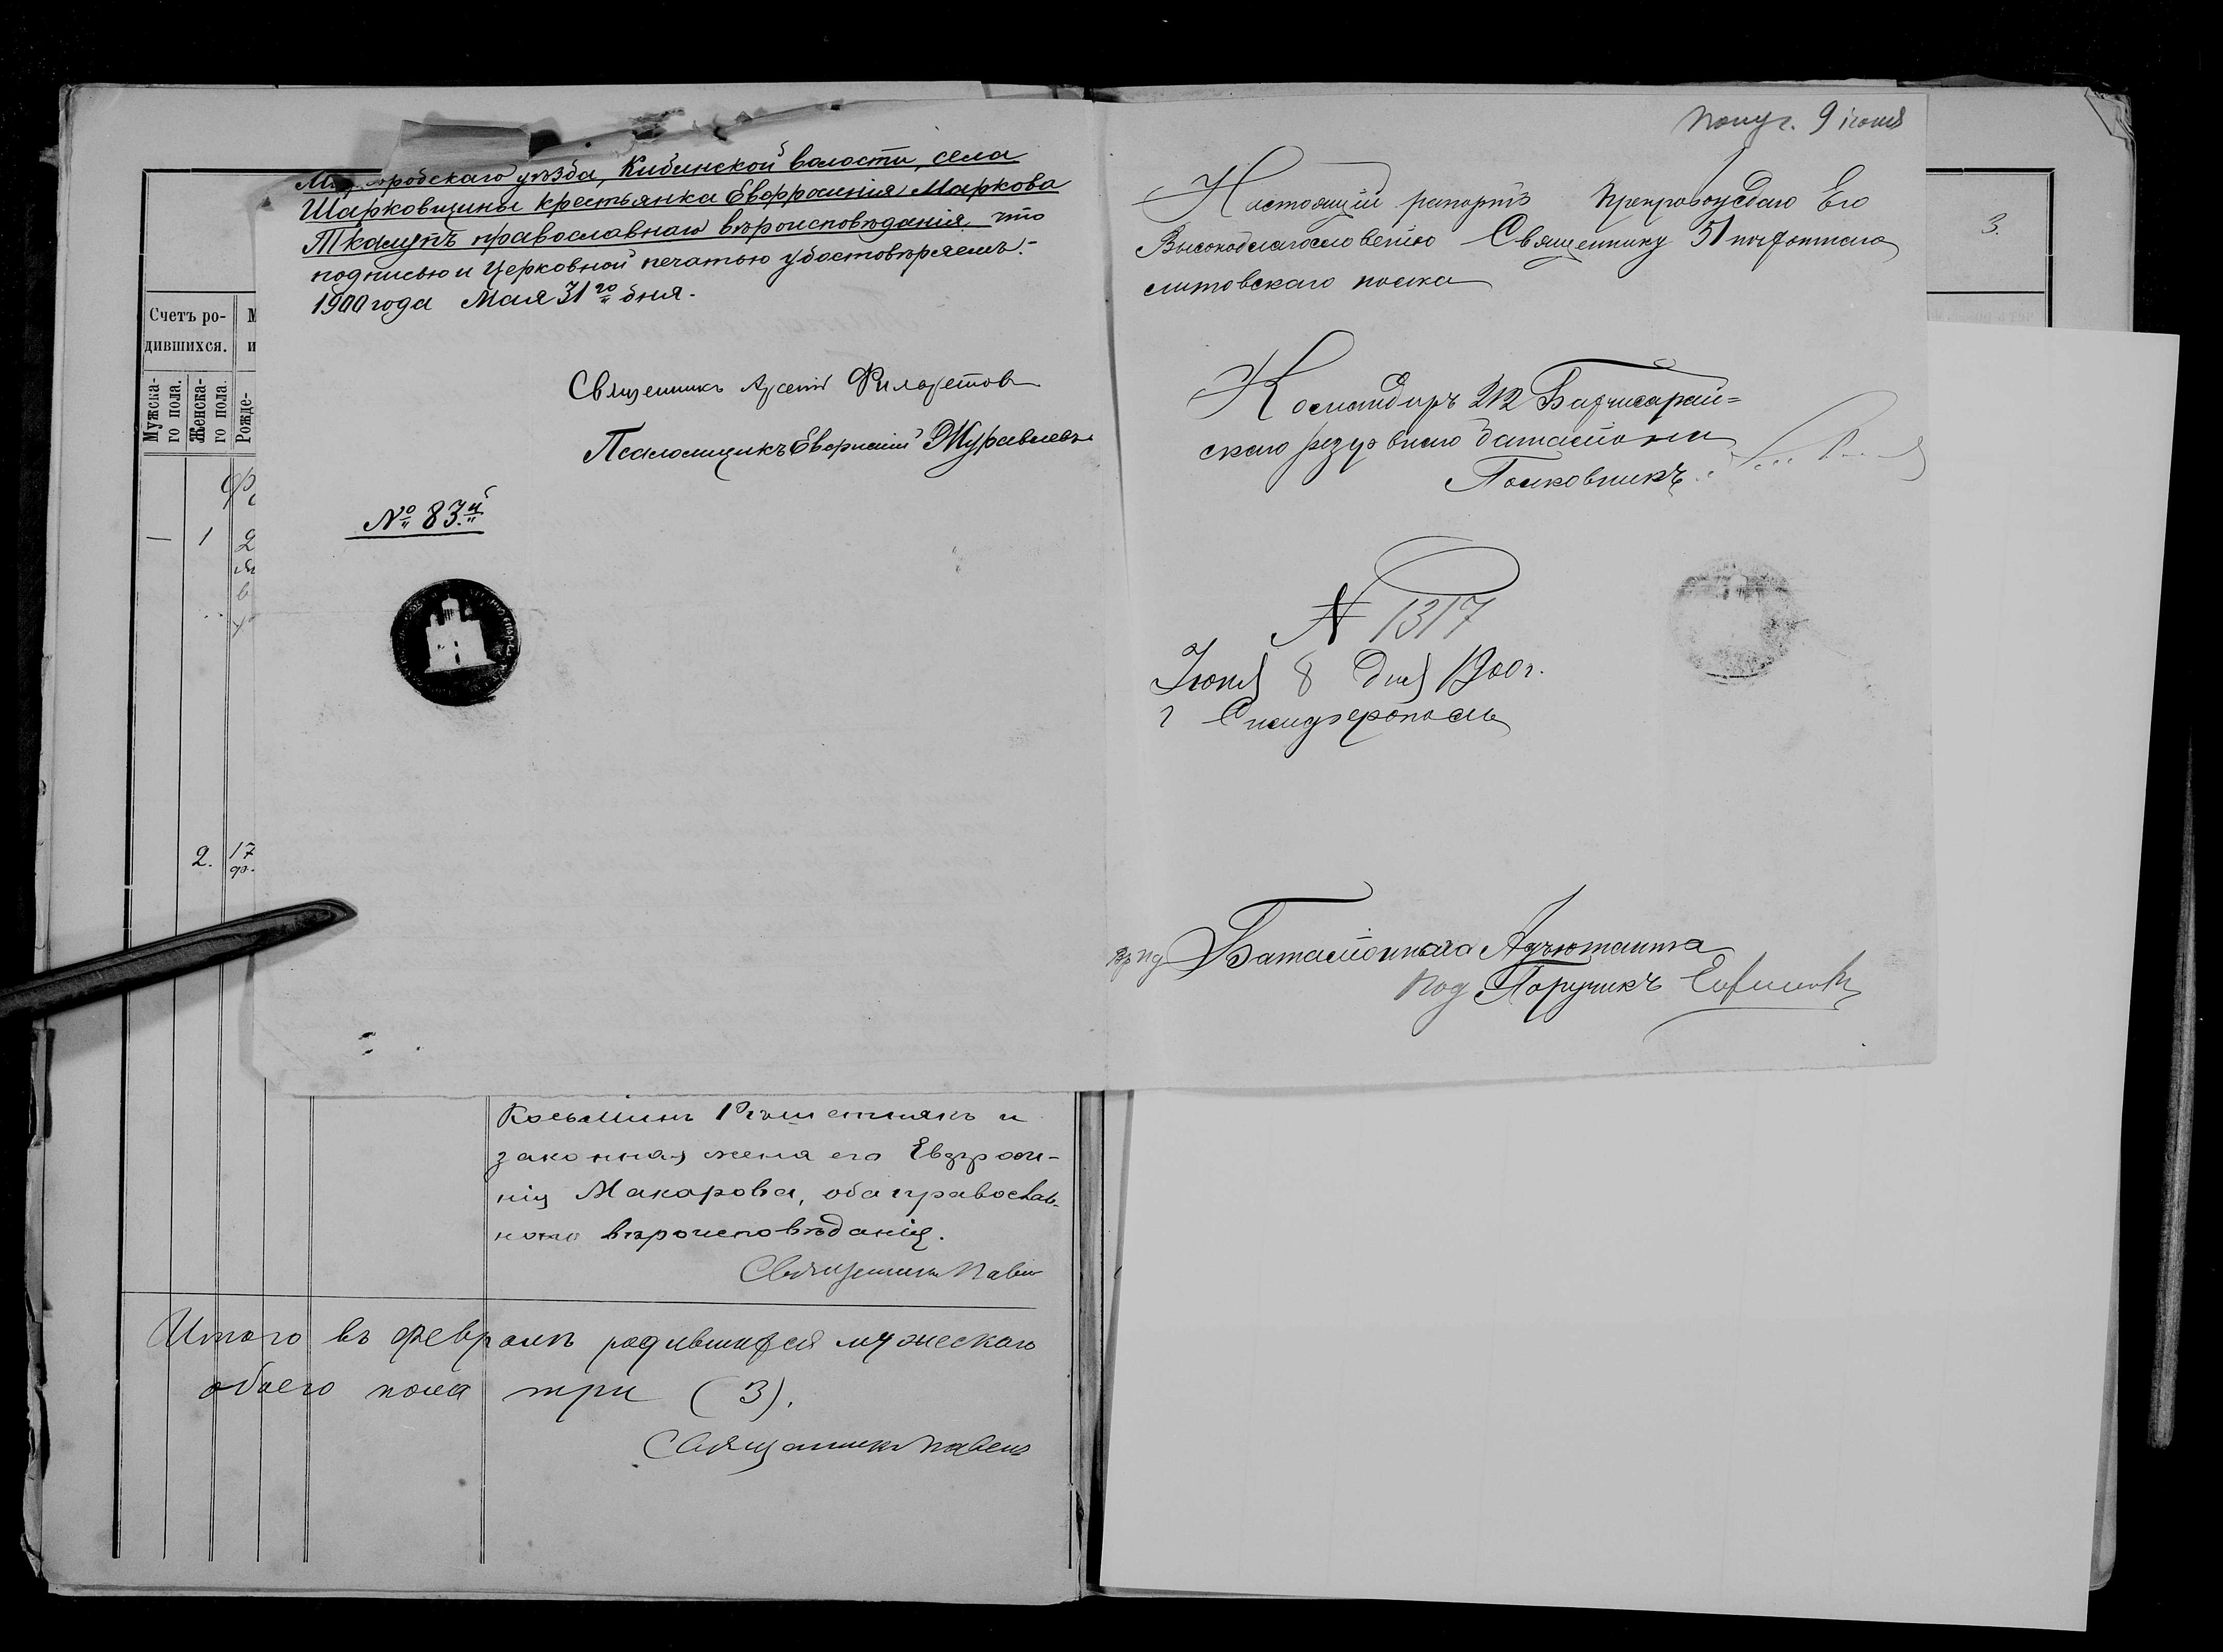 уѣзда, Кибинской волости, села
Шарковщины крестьянка Евфросинія Маркова
Ткалунъ православнаго вѣроисповѣданія, что
подписью и Церковной печатью удостовѣряемъ.-
1900 года Мая 31го дня.-
Священникъ Арсеній Филаретовъ
Псаломщикъ Журавлевъ
№ 83.й
Счетъ ро-
дившихся.
Мужска-
го пола.
Женска-
го пола.
Рожде-
— 1 2
2. 17
законная жена его Евфроси-
нія Макарова, оба православ-
наго вѣроисповѣданія.
Священникъ Павелъ
Итого въ февралѣ родившихся мужескаго
обоего пола три (3).
Священникъ Павелъ
Получ. 9 іюня
Настоящій рапортъ препровождаю Его
Высокоблагословенію Священнику 51 пѣхотнаго
Литовскаго полка
Командиръ 212 Бахчисарай=
скаго резервнаго баталіона
Полковникъ
N 1317
Іюня 8 дня 1900 г.
г Симферополь
Баталіоннаго Адъютанта
Под Поручикъ
3.